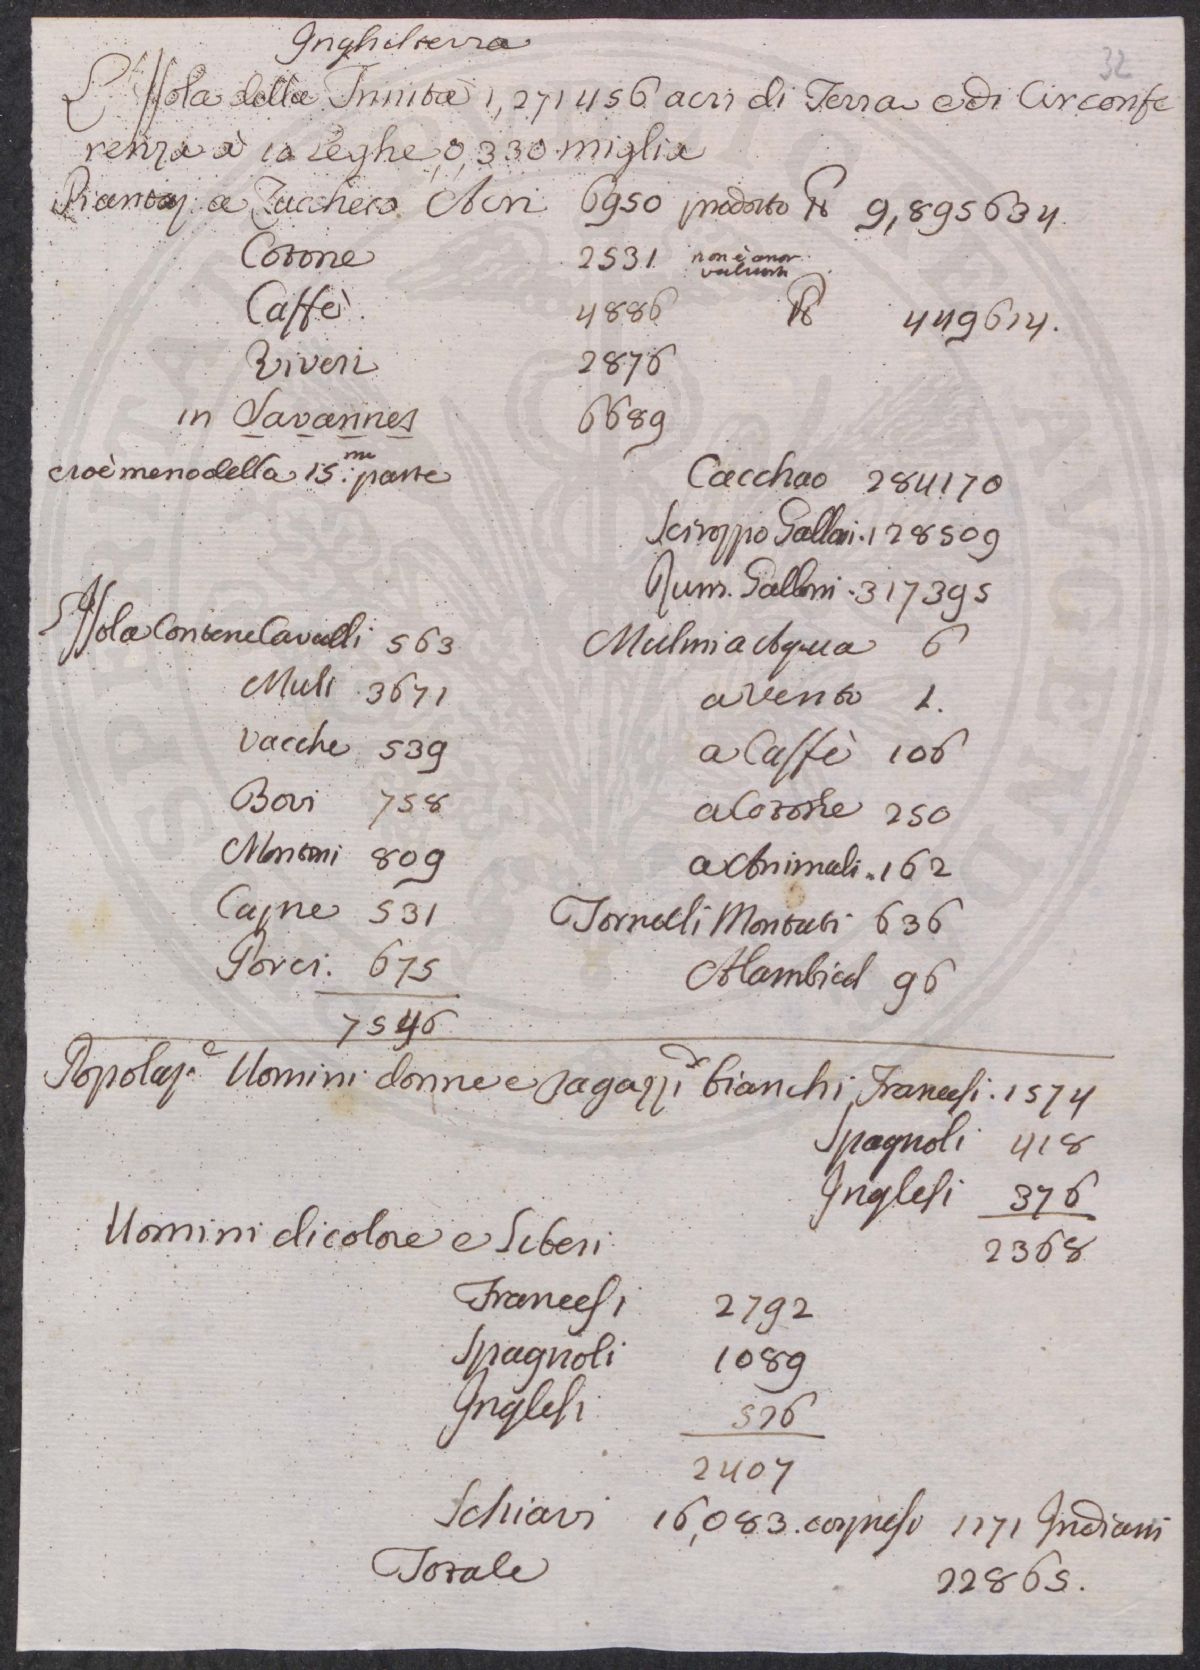 Inghilterra
32
L'Isola della Trinità 1,271456 acri di Terra e di Circonfe
renza à 10 Leghe, o, 330 miglia
Piantaz: a Zucchero Acri 6950 prodotto ℔ 9,895634
Cotone 2531 non è ancor valutato
Caffè 4886 ℔ 449614.
Viveri 2876
in Savannes 6689
cioè meno della 15:me parte
Cacchao 284170
Sciroppo Galloni 128509
Rum. Galloni 317395
L'Isola Contiene Cavalli 563
Mulini a Aqua 6
Muli 3671
a Vento 1.
Vacche 539
a Caffè 106
Bovi 758
a Cotone 250
Montoni 809
a Animali 162
Capne 531
Tornelli Montati 636
Porci. 675
Alambicd 96
7546
Popolaz.e Uomini donne e ragazzi bianchi Francesi. 1574
Spagnoli 418
Inglesi 376
2368
Uomini di colore e Liberi
Francesi 2792
Spagnoli 1089
Inglesi 526
2407
Schiavi 16,083. compreso 1171 Indiani
Totale 22865.